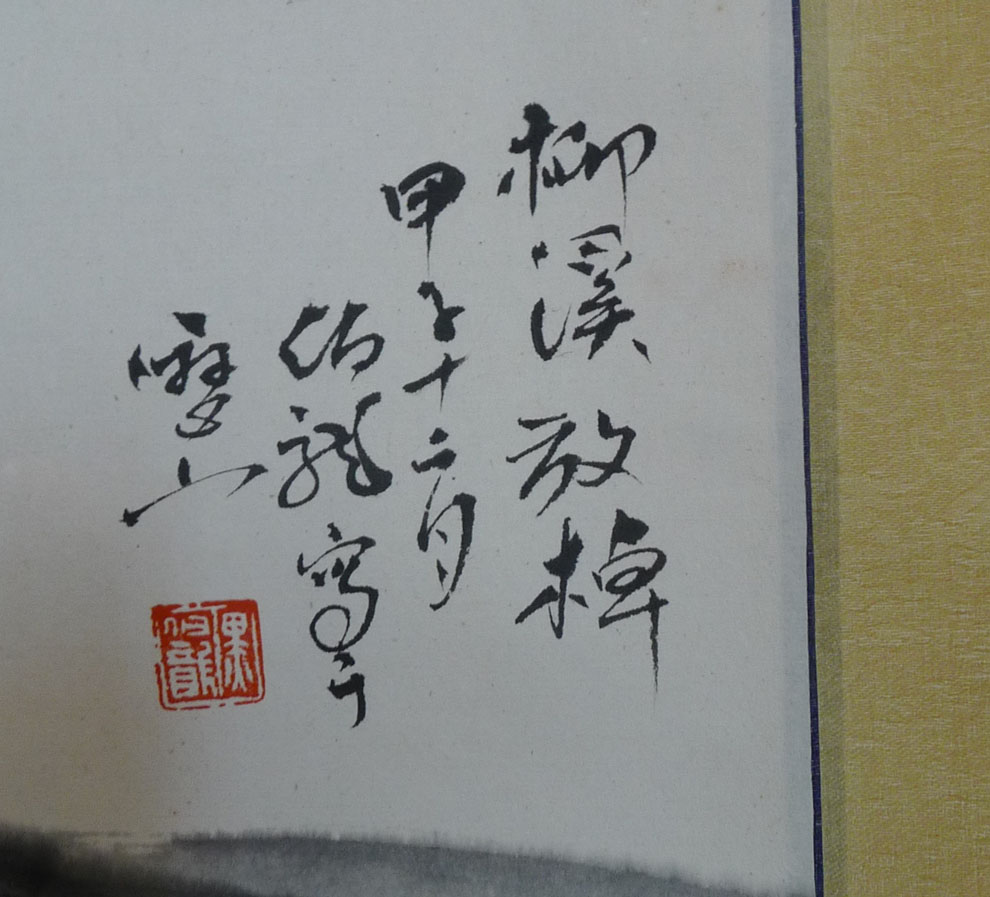 柳溪放棹
甲子十二月
伯龍寫于
雙山
伯龍